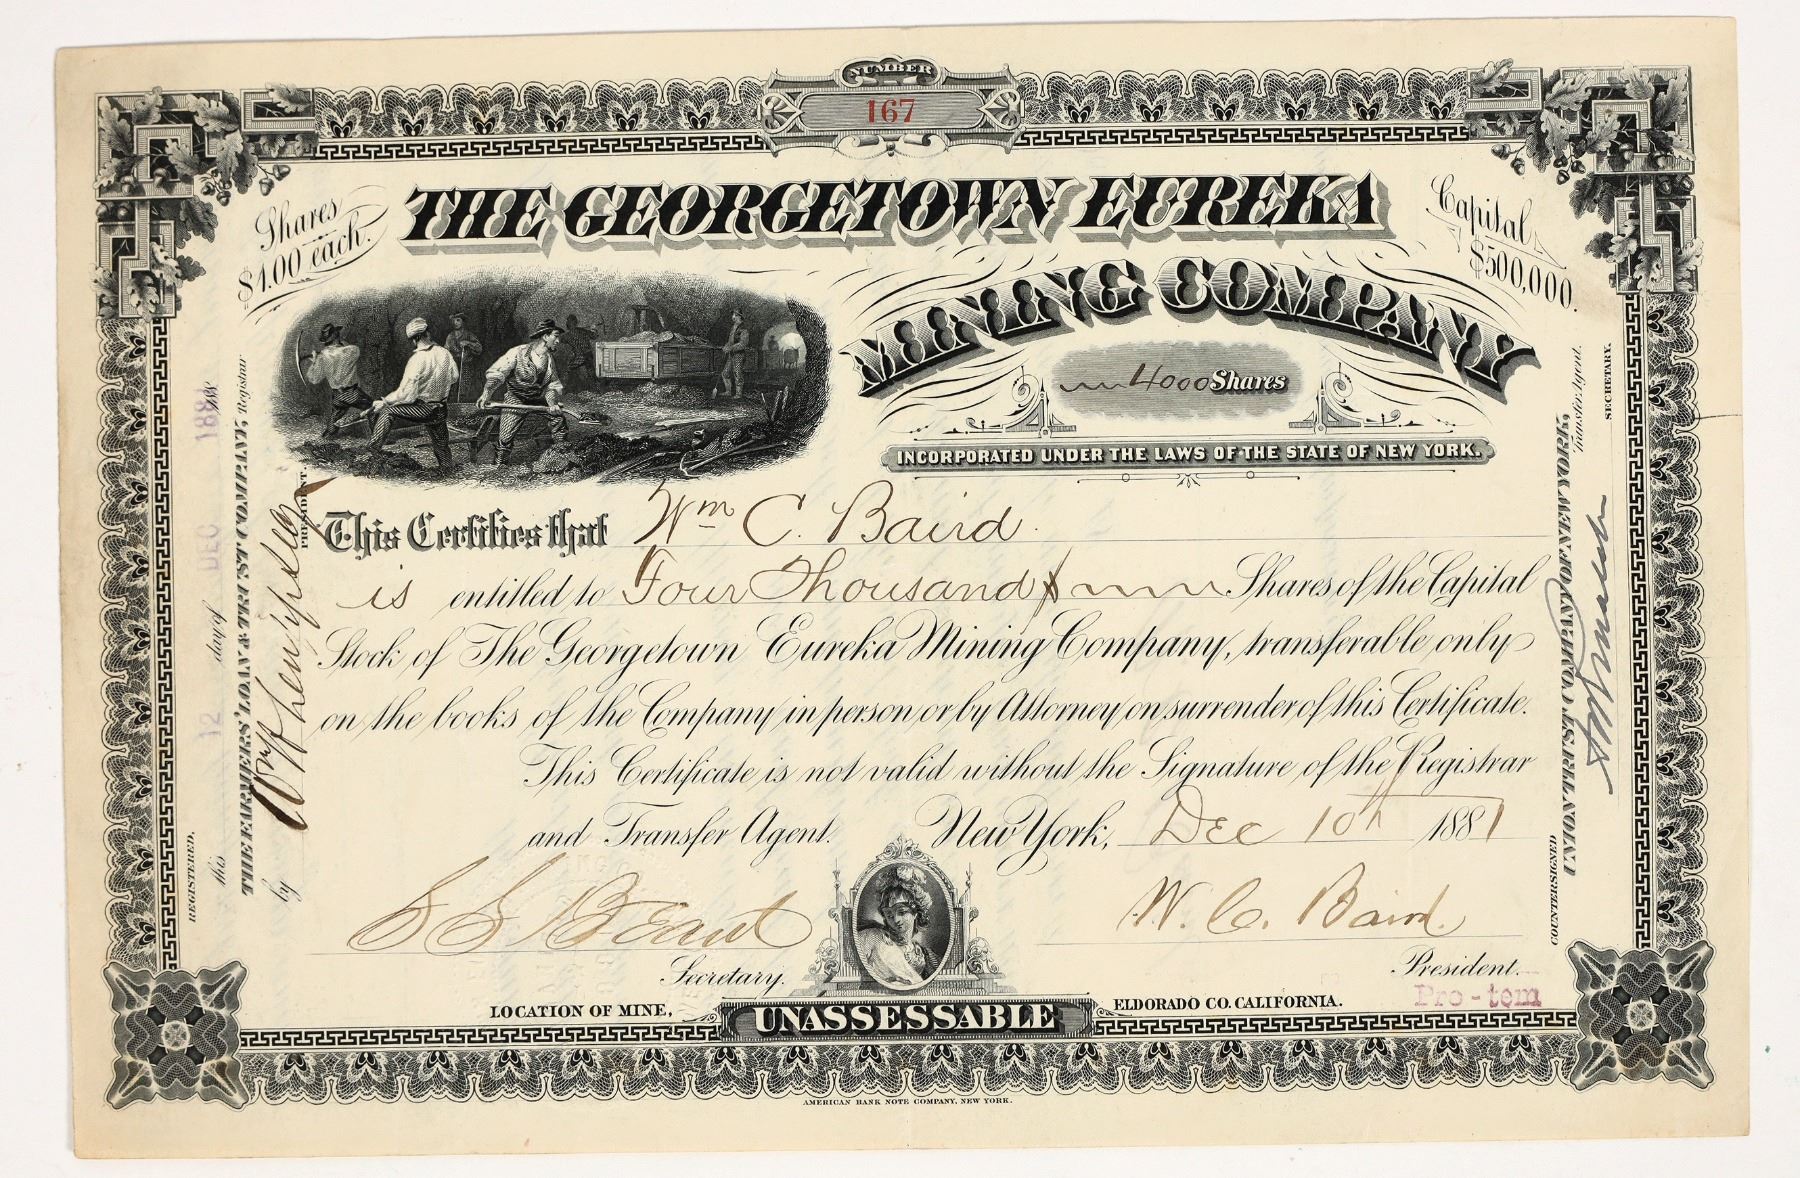 NUMBER
167
Shares
$1.00 each.
THE GEORGETOWN EUREKA
Capital
$500,000.
MINING COMPANY
4000 Shares
INCORPORATED UNDER THE LAWS OF THE STATE OF NEW YORK.
This Certifies that Wm C. Baird.
is entitled to Four Thousand Shares of the Capital
Stock of The Georgetown Eureka Mining Company, transferable only
on the books of the Company in person or by Attorney on surrender of this Certificate.
This Certificate is not valid without the Signature of the Registrar
and Transfer Agent. New York, Dec 10th 1881
W. C. Baird.
Secretary.
President.
Pro-tem
LOCATION OF MINE,
UNASSESSABLE
ELDORADO CO. CALIFORNIA.
AMERICAN BANK NOTE COMPANY, NEW YORK.
REGISTERED.
this 12 day of DEC 1881
THE FARMERS' LOAN & TRUST COMPANY, Registrar
by
PRESIDENT.
COUNTERSIGNED
UNION TRUST COMPANY OF NEW YORK,
Transfer Agent.
SECRETARY.